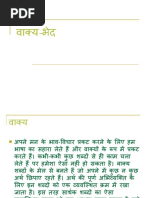 वाक्य-भेद
वाक्य
अपने मन के भाव-विचार प्रकट करने के लिए हम
भाषा का सहारा लेते हैं और वाक्यों के रूप में प्रकट
करते हैं। कभी-कभी कुछ शब्दों से ही काम चला
लेते हैं पर हमेशा ऐसा नहीं हो सकता। वाक्य
शब्दों के मेल से बनते हैं जो अपने में कुछ न कुछ
अर्थ छिपाए रहते हैं। अर्थ की पूर्ण अभिव्यक्ति के
लिए हम शब्दों को एक व्यवस्थित क्रम में रखा
जाता है। इस तरह सार्थक शब्दों का ऐसा